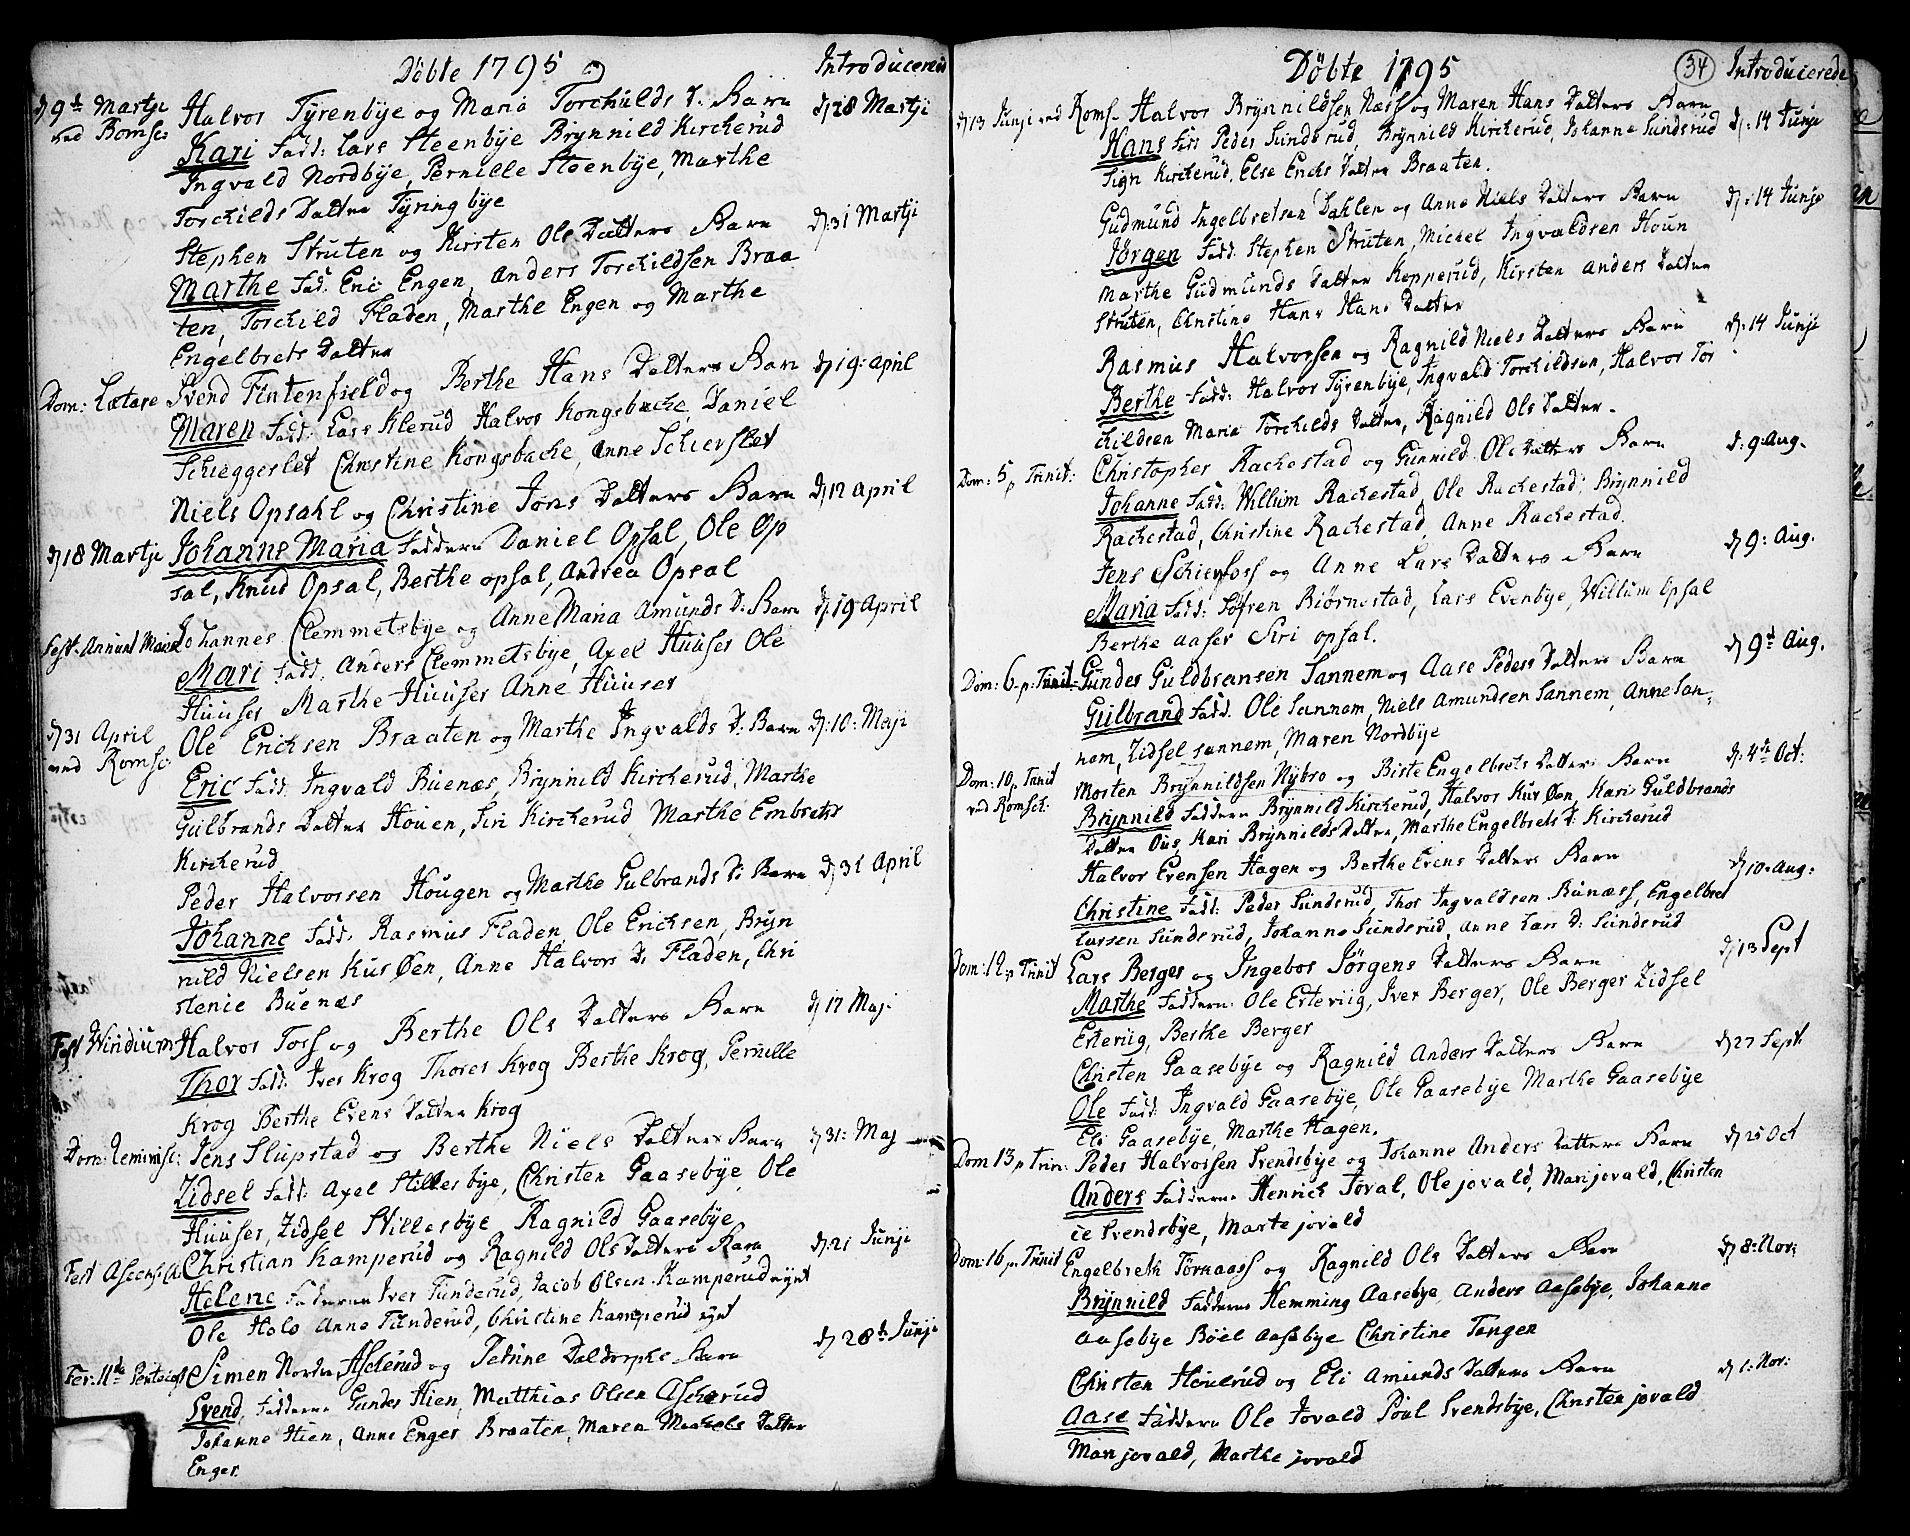 Döbte 1795
Introducerede
d 9de Martji Halvor Tÿrenbÿe og Maria Torchilds D. Barn d 28 Martji
ved Romses Kari Fadd: Lars Steenbÿe Brÿnnild Kircherud
Ingvald Nordbÿe, Pernille Steenbÿe, Marthe
Torchilds Datter Tÿringbÿe
Stephen Struten og Kirsten Ols Datters Barn d: 31 Martji
Marthe Fad. Eric Engen, Anders Torchildsen Braa
ten, Torchild Fladen, Marthe Engen og Marthe
Engelbrets Datter
Dom: Lætare Svend Fintenfield og Berthe Hans Datters Barn d 19: April
Maren Fadd: Lars Klerud Halvor Kongsbache, Daniel
Schieggerslet Christine Kongsbache, Anne Schierslet
Niels Opsahl og Christine Jons Datters Barn d 12 April
d 18 Martji Johanne Maria Faddere Daniel Opsal, Ole Op
sal, Knud Opsal, Berthe opsal, Andrea Opsal
Fest. Annunt Mariæ Johannes Clemmetsbÿe og Anne Maria Amunds D. Barn d 19 April
Mari Fadd: Anders Clemmetsbÿe, Axel Huuser Ole
Huuser Marthe Huuser Anne Huuser
d 31 April Ole Ericksen Braaten og Marthe Ingvalds D: Barn d: 10: Maji
ved Romse Eric Fadd: Ingvald Buenæs, Brÿnnild Kircherud, Marthe
Guilbrands Datter Houen, Siri Kircherud Marthe Embrets
Kircherud
Peder Halvorssen Hougen og Marthe Gulbrands D: Barn d 31 April
Johanne Fadd: Rasmus Fladen Ole Ericksen, Brÿn
nild Nielsen Kusöen, Anne Halvors D. Fladen, Chri
stence Buenæs
Fest Viridium Halvor Foss og Berthe Ols Datters Barn d 17 Maj.
Thor Fadd: Iver Krog Thorer Krog Berthe Krog, Pernille
Krog Berthe Evens Datter Krog
Dom: Reminisc: Jens Slupstad og Berthe Niels Datters Barn d 31: Maj
Zidsel Fadd: Axel Stillesbÿe, Christen Gaasebÿe, Ole
Huuser, Zidsel Stillesbÿe Ragnild Gaasebÿe
Fest Ascens: Christian Kamperud og Ragnild Ols Datters Barn d: 21 Junji
Helene Faddere Iver Tunderud, Jacob Olsen Kamperud eÿet
Ole Holo Anne Tunderud, Christine Kamperud eÿet
Fer: IIde Pentecost Simen Nordre Ascherud og Petrine Daldorphs Barn d 28de Junji
Svend, Faddere Gunder Hien, Matthias Olsen Ascherud
Johanne Hien, Anne Enger Braaten, Maren Datter
Enger
Döbte 1795
34
Introducerede
d 13 Junji ved Roms- Halvor Brÿnnildsen Næss og Maren Hans Datters Barn d: 14 Junji
Hans Fad: Peder Sundsrud, Brÿnnild Kircherud, Johanne Sundsrud
Sign Kircherud, Else Erichs Datter Braaten.
Gudmund Ingelbretsen Dahlen og Anne Niels Datters Barn d: 14 Junji
Jörgen Fadd: Stephen Struten, Michel Ingvaldsen Houn
Marthe Gudmunds Datter Kopperud, Kirsten Anders Datter
Struten, Christine Hans Hans Datter
Rasmus Halvorssen og Ragnild Niels Datters Barn d: 14 Junji
Berthe Fadd: Halvor Tÿrenbÿe, Ingvald Torchildsen, Halvor Tor
childsen Maria Torchilds Datter, Ragnild Ols Datter.
Dom: 5 p Trinit: Christopher Rachestad og Gunnild Ols Datters Barn d: 9 Aug.
Johanne Fadd: Willum Rachestad, Ole Rachestad, Brÿnnild
Rachestad, Christine Rachestad, Anne Rachestad.
Jens Schierfoss og Anne Lars Datters Barn d 9: Aug.
Maria Fadd: Söfren Biörnestad, Lars Evenbÿe, Willum Opsal
Berthe Aaser Siri opsal.
Dom: 6 p: Trinit: Gunder Guldbransen Sannem og Aase Peders Datters Barn d 9de Aug.
Guilbrand Fadd. Ole Sannem, Niels Amundsen Sannem, Anne San-
nem, Zidsel sannem, Maren Nordbÿe
Dom: 10 p Trinit Morten Brÿnnildsen Nÿbro og Birte Engelbrets Datters Barn d: 4de Oct:
ved Romsch: Brÿnnild Faddere Brÿnnild Kircherud, Halvor Kusöen, Kari Guldbrands
Datter Ous, Kari Brÿnnilds Datter, Marthe Engelbrets D: Kircherud
Halvor Evensen Hagen og Berthe Evens Datters Barn d 10 Aug:
Christine Fadd: Peder Sundsrud, Thor Ingvaldsen Bunæss, Engelbret
Larssen Sundsrud, Johanne Sundsrud, Anne Lars D: Sundsrud
Dom: 12 p Trinit Lars Berger og Ingebor Jörgens Datters Barn d 13 Sept
Marthe Faddere: Ole Erteviig, Iver Berger, Ole Berger Zidsel
Erteviig, Berthe Berger
Christen Gaasebÿe og Ragnild Anders Datters Barn d 27 Sept
Ole Fadd: Ingvald Gaasebÿe, Ole Gaasebÿe Marthe Gaasebÿe
Eli Gaasebÿe, Marthe Hagen.
Dom 13 p Trin: Peder Halvorssen Svendsbÿe og Johanne Anders Datters Barn d 25 Oct
Anders Faddere Henrich Joval, Ole jovald, Mari jovald, Christen
ce Svendsbÿe, Marte jovald
Dom: 16 p. Trinit Engelbreth Tornaass og Ragnild Ols Datters Barn d 8: Nov:
Brÿnnild Faddere Hemming Aasebÿe, Anders Aasebÿe, Johanne
Aasebÿe Böel Aasebÿe Christine Tangen
Christen Houerud og Eli Amunds Datters Barn d 1: Nov:
Aase Faddere Ole Jovald Povl Svendsbÿe, Christen jovald
Mari jovald, Marthe jovald